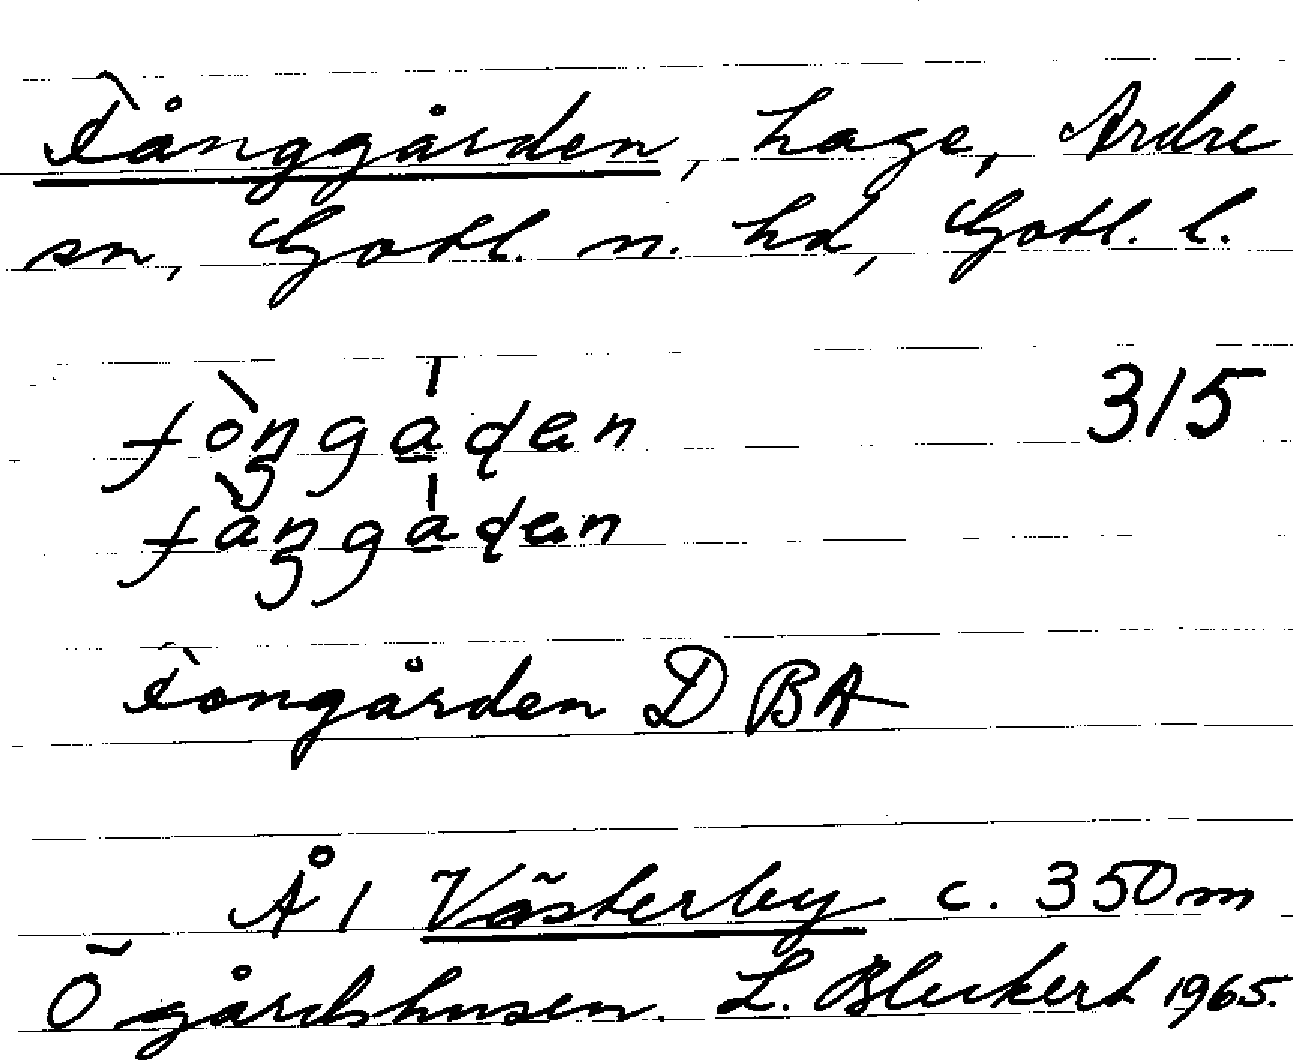 Fånggården, hage, Ardre
sn, Gotl. n. hd, Gotl. l.
315
fòŋgáɖen
fàŋgáɖen
Fongården D BA
Å 1 Västerby c. 350 m
Ö gårdshusen. L. Bleckert 1965.